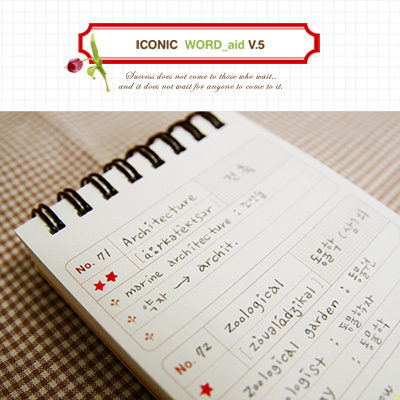 ICONIC WORD_aid V.5
Success does not come to those who wait..
and it does not wait for anyone to come to it.
No. 71 Architecture 건축
[áːrkətektʃər]
marine architecture : 조선술
약자 → archit.
No. 72 zoological 동물학(상)의
[zòuəládʒikəl]
zoological garden : 동물원
zoologist : 동물학자
동물학